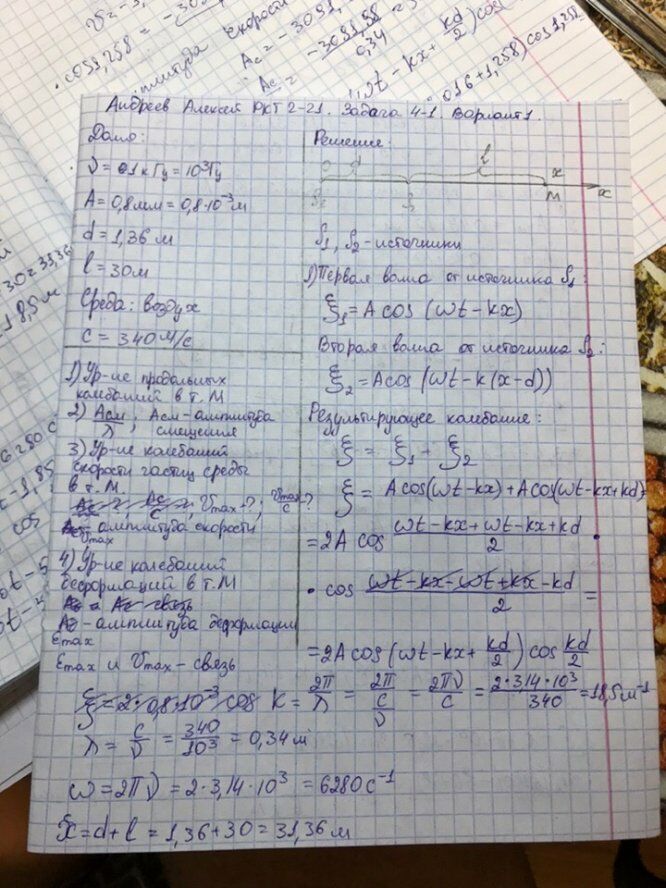 cos1,258 = -30
Ac = -3091,
Aс =
0,34
ωt - kx + kd/2) cos(
016+1,258) cos 1,258
30=31,36
18,5м
6280 с
cos
Андреев Алексей РКТ2-21. Задача 4-1. Вариант 1.
Дано:
ν = 1 кГц = 10³ Гц
A = 0,8 мм = 0,8·10⁻³ м
d = 1,36 м
l = 30 м
Среда: воздух
c = 340 м/с
1) Ур-ие продольных
колебаний в т. М
2) Aсм/λ ; Aсм - амплитуда
смещения
3) Ур-ие колебаний
скорости частиц среды
в т. М
Vmax - ?; Vmax/c - ?
Vmax - амплитуда скорости
4) Ур-ие колебаний
деформаций в т. М
εmax - амплитуда деформации
εmax и Vmax - связь
Решение:
O d l x
S₁ S₂ M x
S₁, S₂ - источники
1) Первая волна от источника S₁:
ξ₁ = A cos (ωt - kx)
Вторая волна от источника S₂:
ξ₂ = A cos (ωt - k(x-d))
Результирующее колебание:
ξ = ξ₁ + ξ₂
ξ = A cos(ωt - kx) + A cos(ωt - kx + kd) =
= 2A cos (ωt - kx + ωt - kx + kd)/2 ·
· cos (ωt - kx - ωt + kx - kd)/2 =
= 2A cos (ωt - kx + kd/2) cos kd/2
ξ = 2·0,8·10⁻³ cos k = 2π/λ = 2π/(c/ν) = 2πν/c = 2·3,14·10³/340 = 18,5 м⁻¹
λ = c/ν = 340/10³ = 0,34 м
ω = 2πν = 2·3,14·10³ = 6280 с⁻¹
x = d + l = 1,36 + 30 = 31,36 м